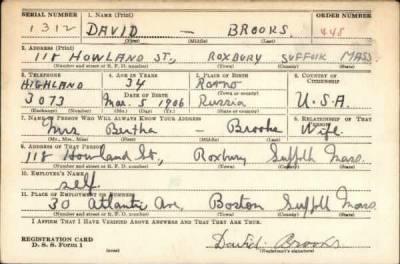 SERIAL NUMBER 1. NAME (Print) ORDER NUMBER
1312 DAVID — BROOKS. 448
(First) (Middle) (Last)
2. ADDRESS (Print)
118 HOWLAND ST., ROXBURY SUFFOLK MASS
(Number and street or R. F. D. number) (Town) (County) (State)
3. TELEPHONE 4. AGE IN YEARS 5. PLACE OF BIRTH 6. COUNTRY OF CITIZENSHIP
HIGHLAND 34
DATE OF BIRTH (Town or county)
3073 Mar. 5 1906 Russia U.S.A.
(Exchange) (Number) (Mo.) (Day) (Yr.) (State or country)
7. NAME OF PERSON WHO WILL ALWAYS KNOW YOUR ADDRESS 8. RELATIONSHIP OF THAT PERSON
Mrs. Bertha — Brooks Wife.
(Mr., Mrs., Miss) (First) (Middle) (Last)
9. ADDRESS OF THAT PERSON
118 Howland St., Roxbury Suffolk Mass.
(Number and street or R. F. D. number) (Town) (County) (State)
10. EMPLOYER'S NAME
self
11. PLACE OF EMPLOYMENT OR BUSINESS
30 Atlantic Ave. Boston Suffolk Mass.
(Number and street or R. F. D. number) (Town) (County) (State)
I AFFIRM THAT I HAVE VERIFIED ABOVE ANSWERS AND THAT THEY ARE TRUE.
REGISTRATION CARD
D. S. S. Form 1 David Brooks
(over) (Registrant's signature)